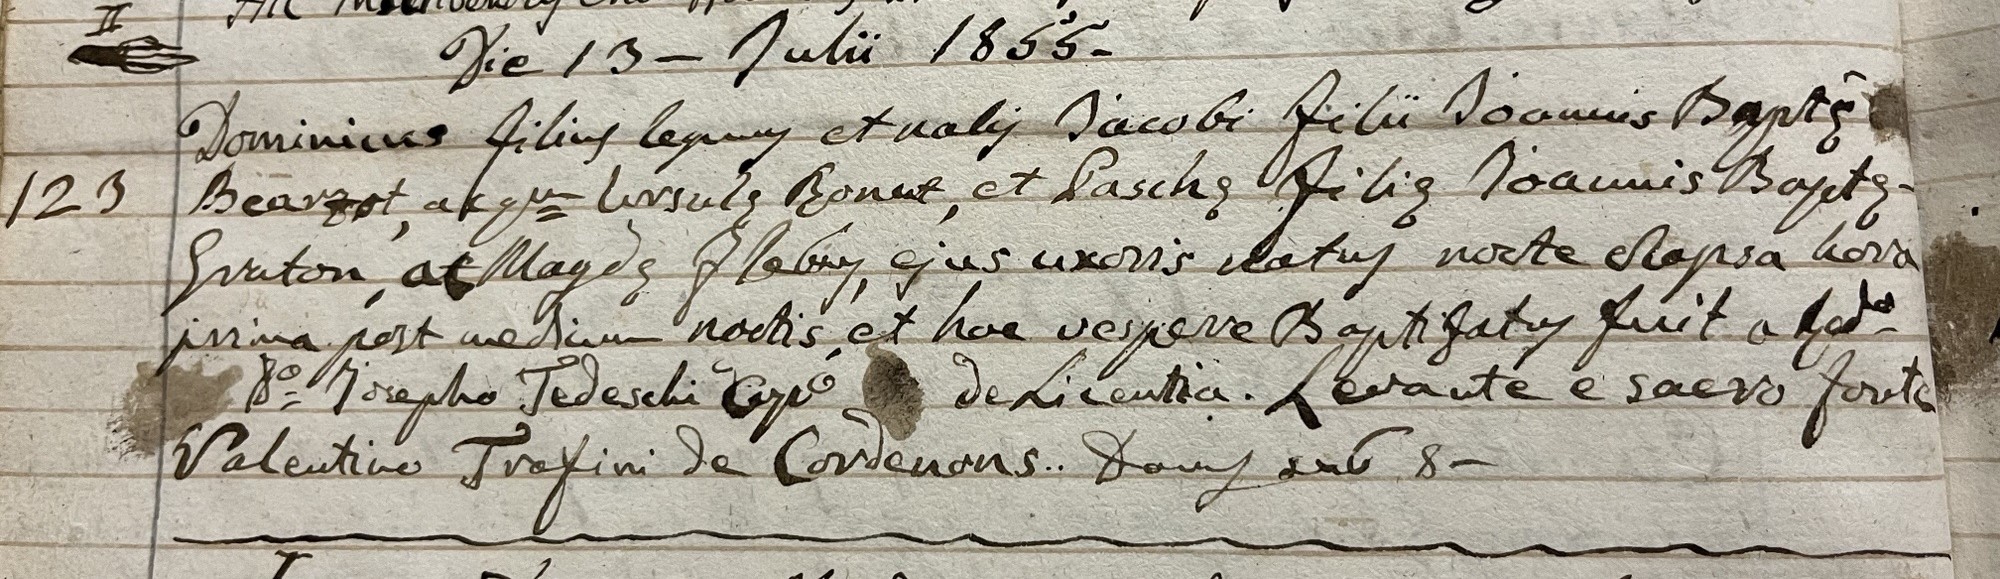 II
Die 13 - Julii 1855-
Dominicus filius legmus et nalis Jacobi filii Joannis Baptę
123 Bearzot, ac qm Ursulę Bonut, et Paschę filię Joannis Baptę-
Graton, ac Magdę Flebus, ejus uxoris natus nocte elapsa hora
prima post medium noctis, et hoc vespere Baptizatus fuit a
Josepho Tedeschi Capo de Licentia. Levante e sacro fonte
Valentino Trafini de Cordenons.. Domus sub 8-